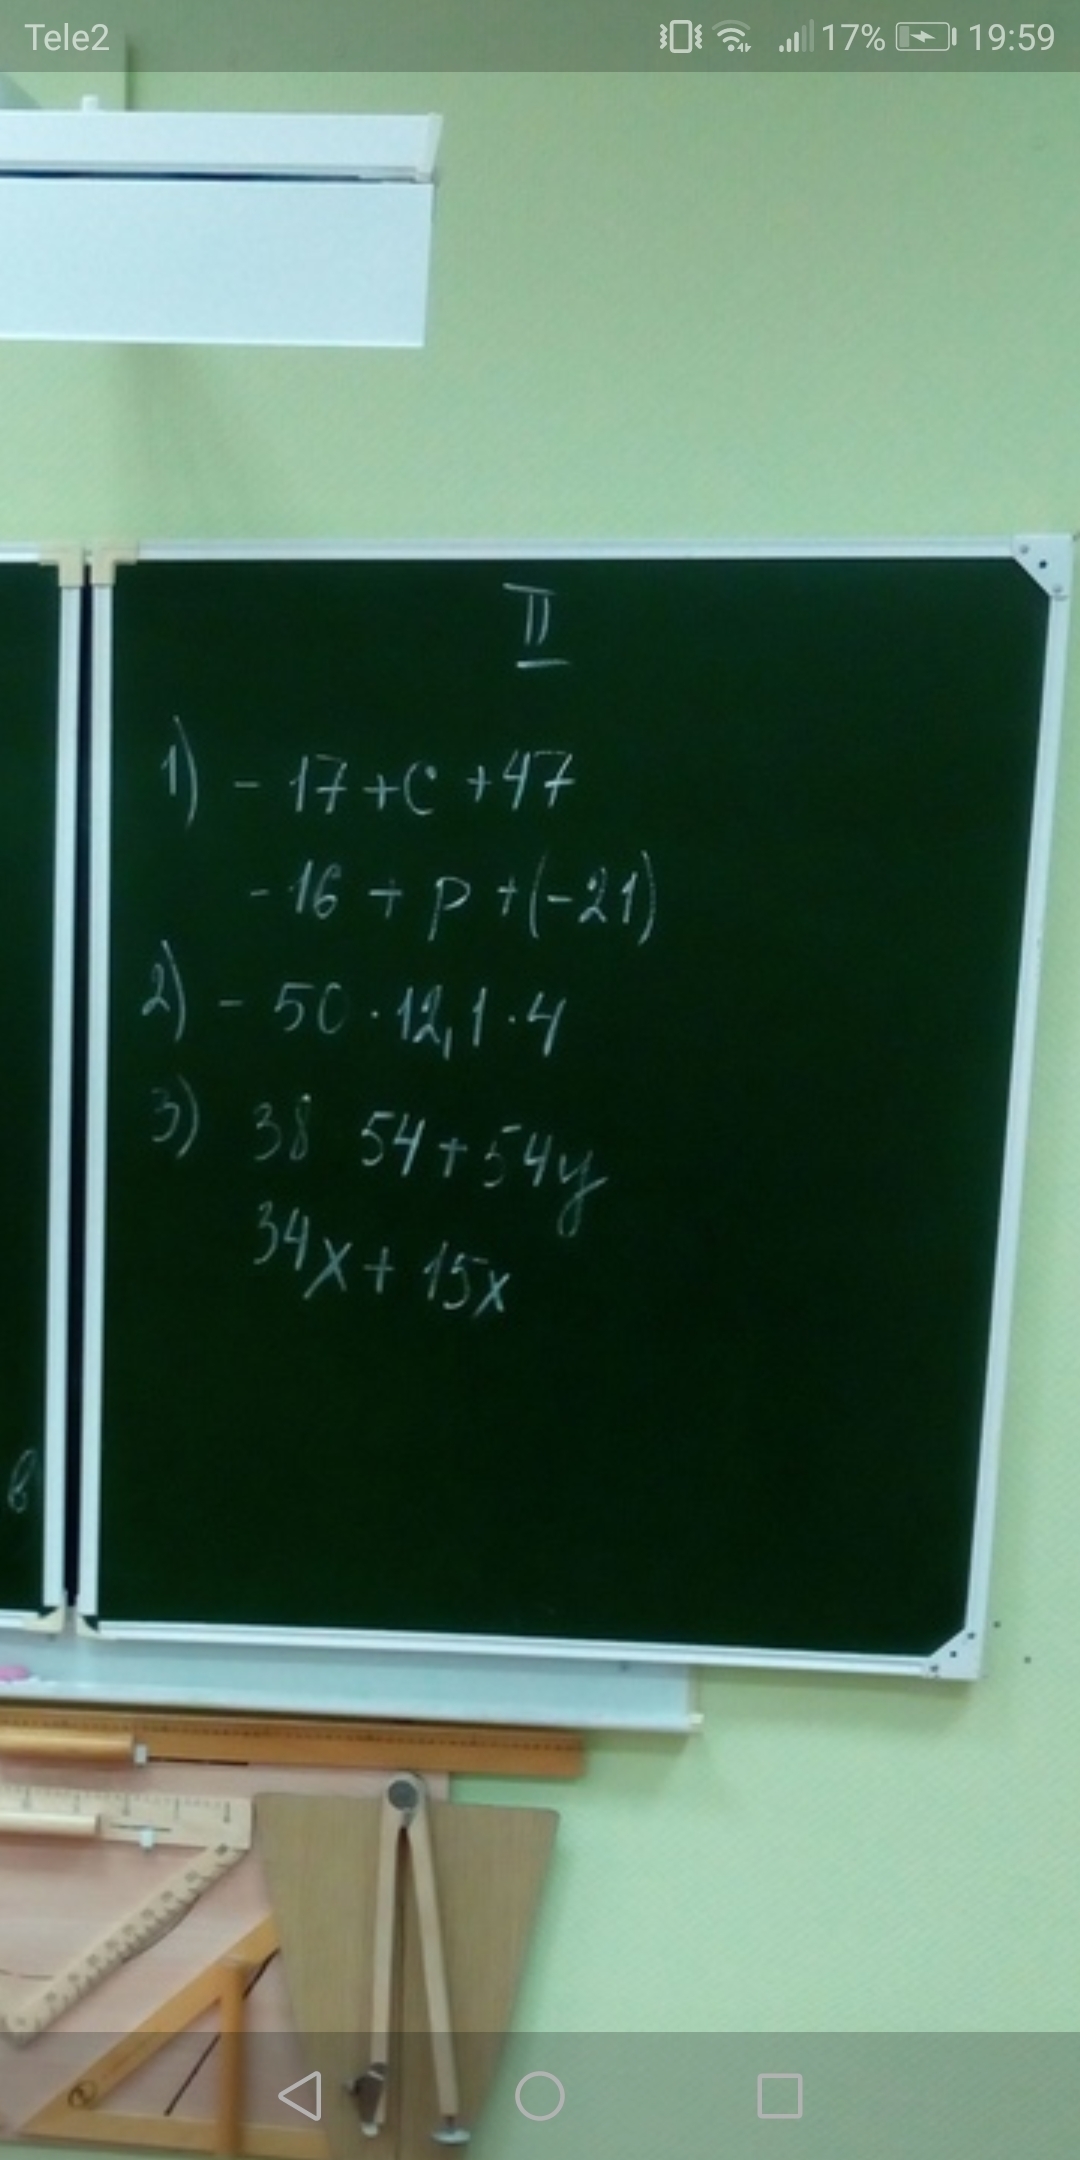 Tele2 17% 19:59
II
1) - 17 + c + 47
- 16 + p + (-21)
2) - 50 · 12,1 · 4
3) 38 54 + 54y
34x + 15x
в